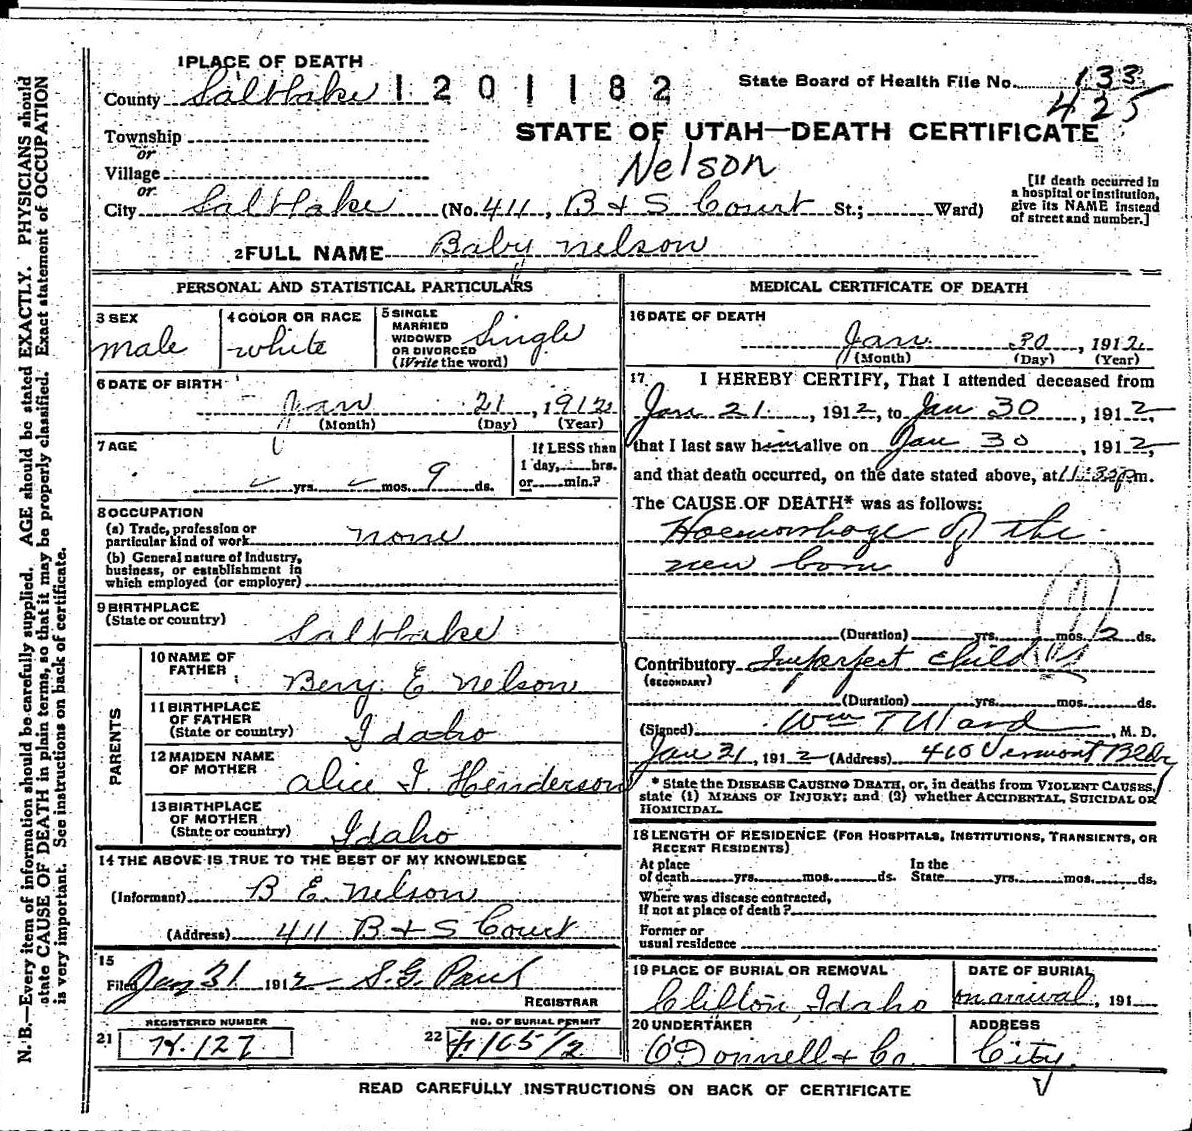 1 PLACE OF DEATH
County Salt Lake 1201182
State Board of Health File No. 133
425
Township
or
Village
or
STATE OF UTAH—DEATH CERTIFICATE
Nelson
City Salt Lake (No. 411, B & S Court St.; Ward)
[If death occurred in
a hospital or institution,
give its NAME instead
of street and number.]
2 FULL NAME Baby Nelson
PERSONAL AND STATISTICAL PARTICULARS
3 SEX
male
4 COLOR OR RACE
white
5 SINGLE
MARRIED
WIDOWED
OR DIVORCED
(Write the word)
Single
6 DATE OF BIRTH
Jan 21, 1912
(Month) (Day) (Year)
7 AGE
yrs. mos. 9 ds.
If LESS than
1 day, hrs.
or min.?
8 OCCUPATION
(a) Trade, profession or
particular kind of work none
(b) General nature of Industry,
business, or establishment in
which employed (or employer)
9 BIRTHPLACE
(State or country) Salt Lake
PARENTS
10 NAME OF
FATHER Benj. E Nelson
11 BIRTHPLACE
OF FATHER
(State or country) Idaho
12 MAIDEN NAME
OF MOTHER Alice I. Henderson
13 BIRTHPLACE
OF MOTHER
(State or country) Idaho
14 THE ABOVE IS TRUE TO THE BEST OF MY KNOWLEDGE
(Informant) B E. Nelson
(Address) 411 B & S Court
15
Filed Jan 31 1912 S.G. Paul
REGISTRAR
REGISTERED NUMBER
21 H.127
NO. OF BURIAL PERMIT
22 H 165/2
MEDICAL CERTIFICATE OF DEATH
16 DATE OF DEATH
Jan. 30, 1912
(Month) (Day) (Year)
17 I HEREBY CERTIFY, That I attended deceased from
Jan 21, 1912, to Jan 30, 1912
that I last saw him alive on Jan 30, 1912,
and that death occurred, on the date stated above, at 11:30 p m.
The CAUSE OF DEATH* was as follows:
Haemorrhage of the
new born
(Duration) yrs. mos. 2 ds.
Contributory Imperfect child
(SECONDARY)
(Duration) yrs. mos. ds.
(Signed) Wm T Ward, M. D.
Jan 31, 1912 (Address) 406 Vermont Bldg
* State the DISEASE CAUSING DEATH, or, in deaths from VIOLENT CAUSES,
state (1) MEANS OF INJURY; and (2) whether ACCIDENTAL, SUICIDAL OR
HOMICIDAL.
18 LENGTH OF RESIDENCE (FOR HOSPITALS, INSTITUTIONS, TRANSIENTS, OR
RECENT RESIDENTS)
At place
of death yrs. mos. ds. In the
State yrs. mos. ds,
Where was disease contracted,
if not at place of death?
Former or
usual residence
19 PLACE OF BURIAL OR REMOVAL
Clifton, Idaho
DATE OF BURIAL
on arrival, 191
20 UNDERTAKER
O'Donnell & Co.
ADDRESS
City.
READ CAREFULLY INSTRUCTIONS ON BACK OF CERTIFICATE
N. B.—Every item of information should be carefully supplied. AGE should be stated EXACTLY. PHYSICIANS should
state CAUSE OF DEATH in plain terms, so that it may be properly classified. Exact statement of OCCUPATION
is very important. See instructions on back of certificate.